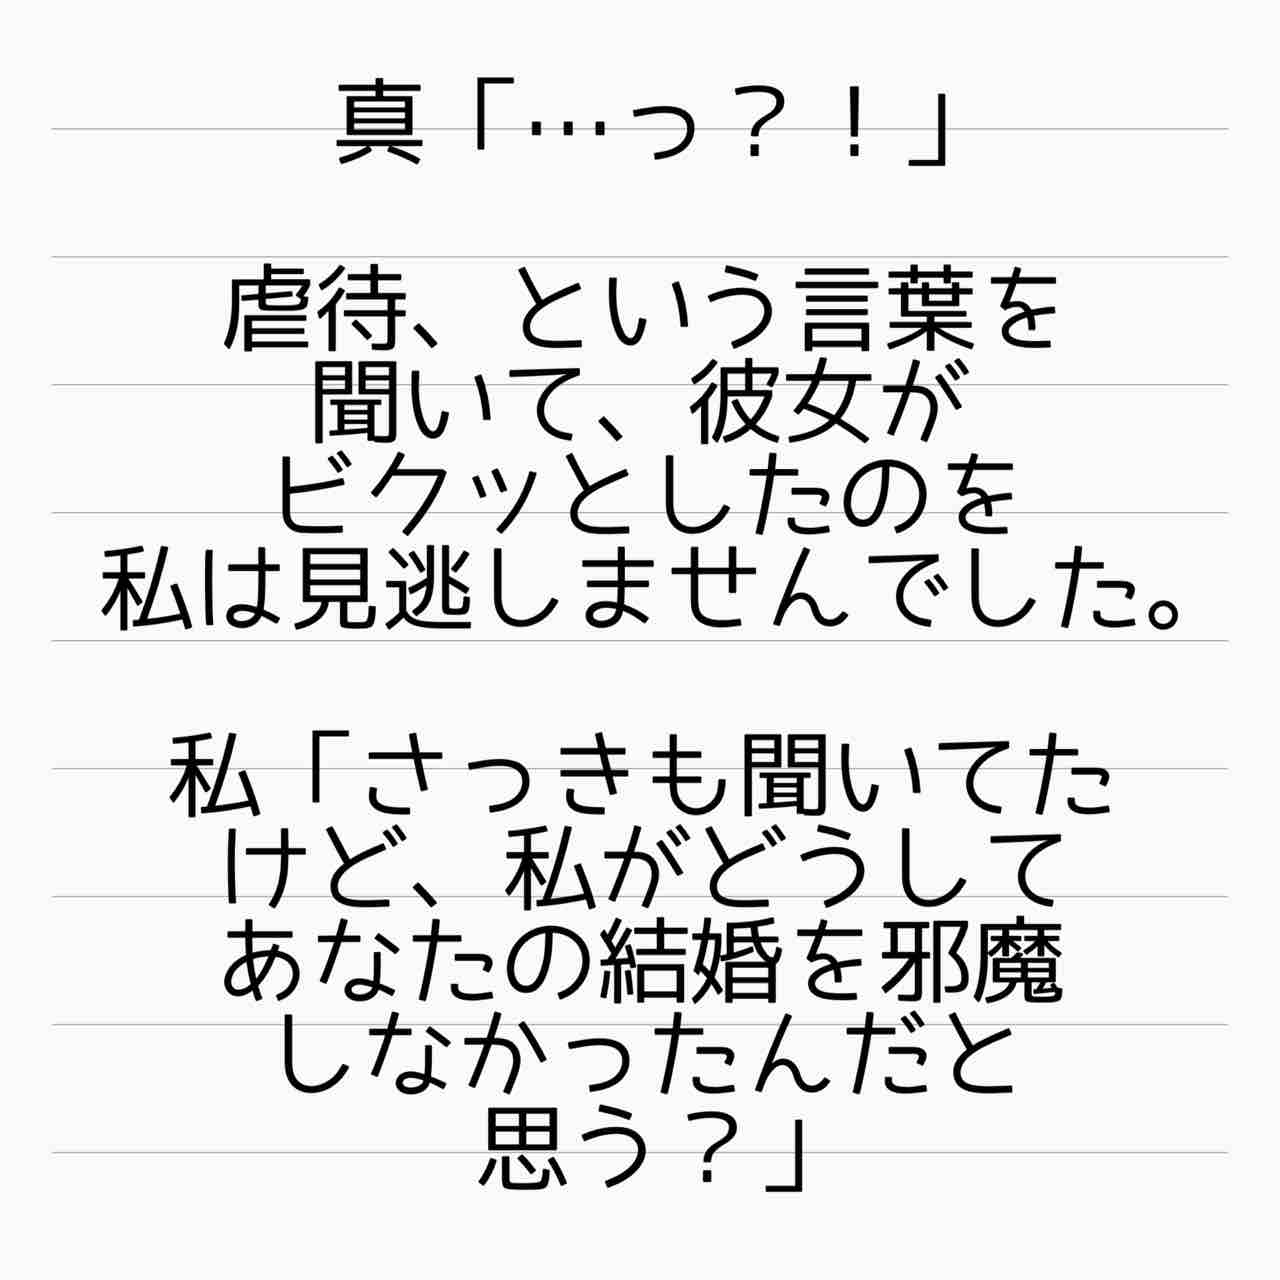 真「…っ？！」
虐待、という言葉を
聞いて、彼女が
ビクッとしたのを
私は見逃しませんでした。
私「さっきも聞いてた
けど、私がどうして
あなたの結婚を邪魔
しなかったんだと
思う？」